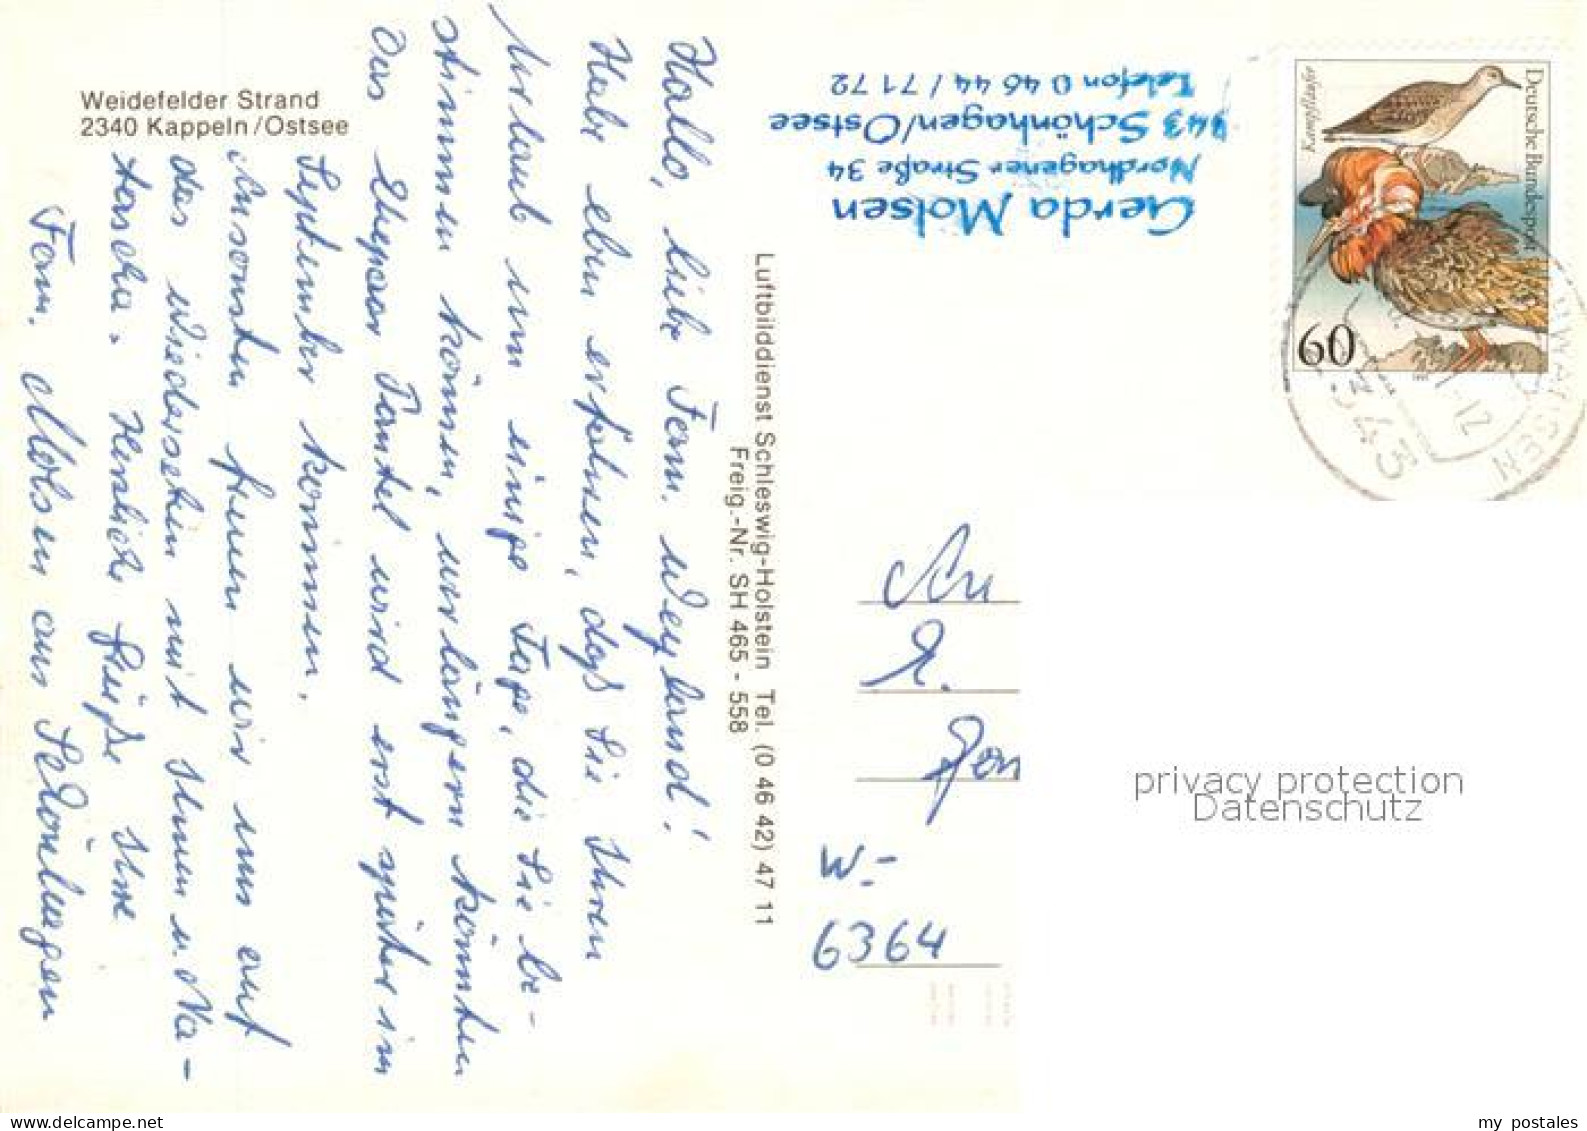 Weidefelder Strand
2340 Kappeln/Ostsee
Hallo, liebe Fam. Weyland!
Habe eben erfahren, daß Sie Ihren
Urlaub um einige Tage, die Sie be-
stimmen können, verlängern könnten
Das Ehepaar Pantel wird erst später im
September kommen.
Ansonsten freuen wir uns auf
das Wiedersehen mit Ihnen u. Na-
tascha. Herzliche Grüße Ihre
Fam. Molsen aus Schönhagen
Luftbilddienst Schleswig-Holstein Tel. (0 46 42) 47 11
Freig.-Nr. SH 465 - 558
Gerda Molsen
Nordhagener Straße 34
343 Schönhagen/Ostsee
Telefon 0 46 44 / 71 72
Deutsche Bundespost
Kampfläufer
60
An
W.-
6364
privacy protection
Datenschutz
my postales